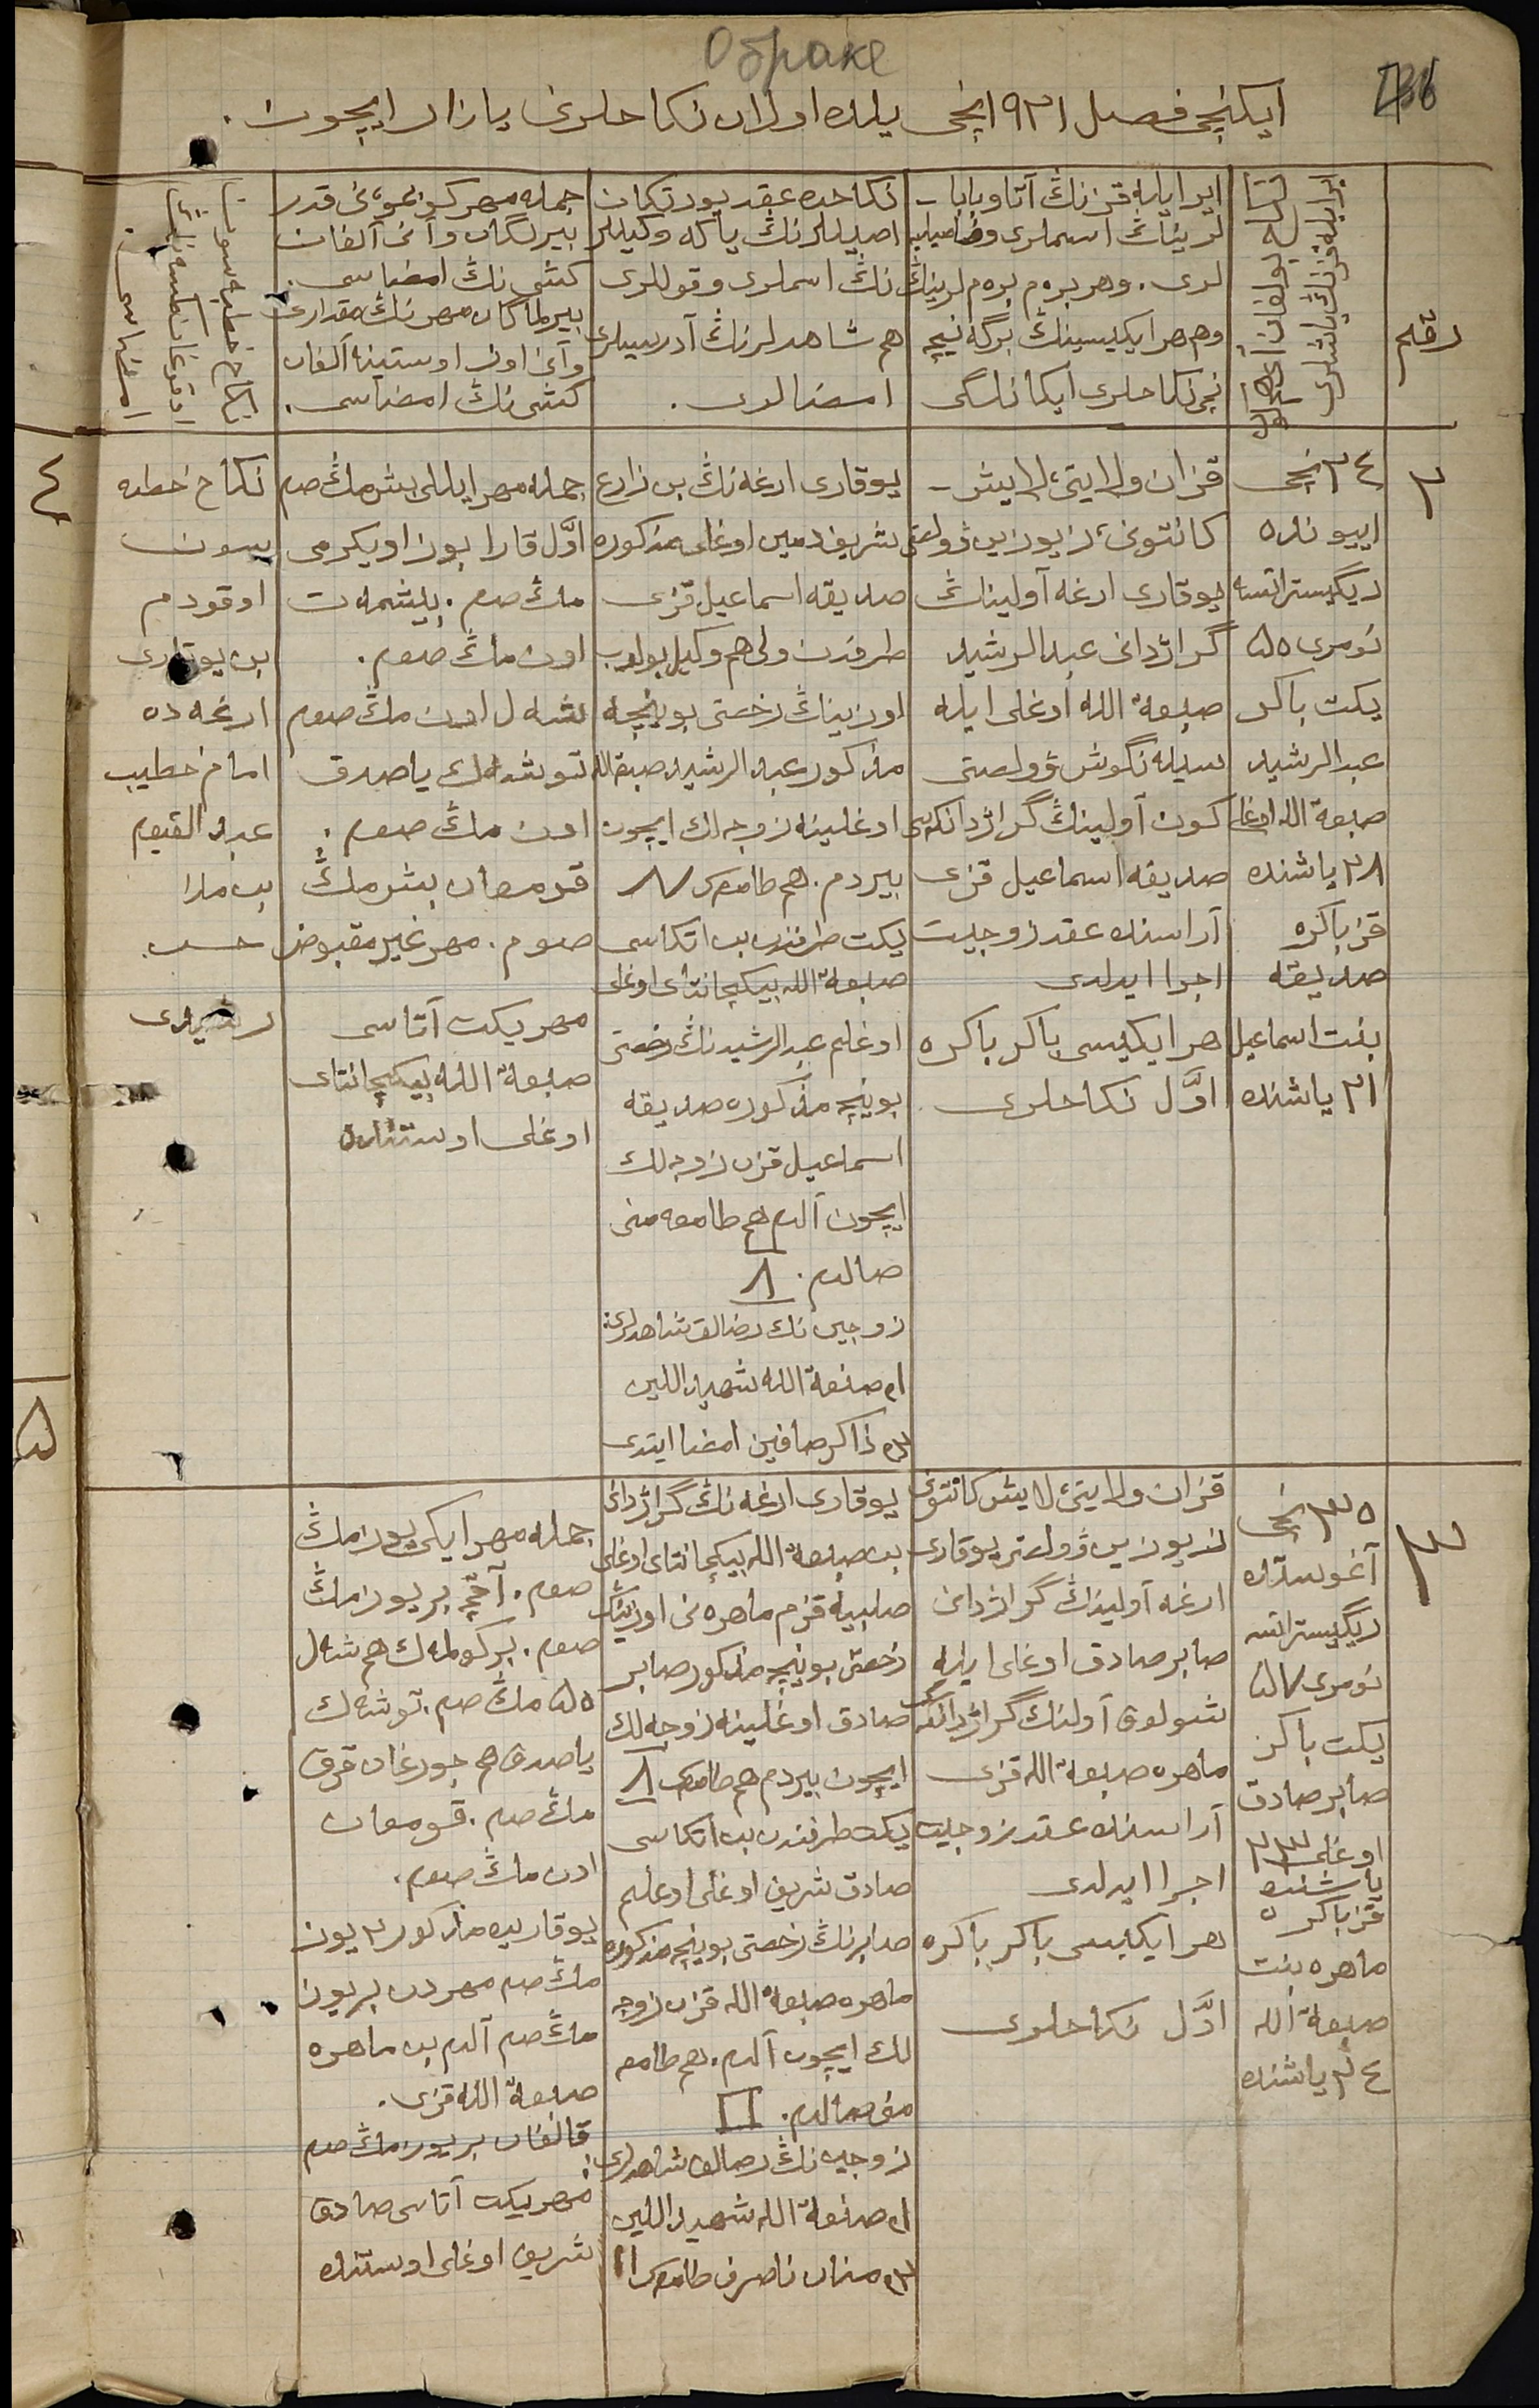 О браке
ایکنچی فصل ۱۹۲۱ نچی یلده اولان نکاحلرنی یازار ایچون.
رقم
ایرایله قزننڭ یاشلری
ایرایله قزننڭ آتا و بابا-
لرینڭ اسملری و فامیلیه
لری. وهر بره م بره م لرینڭ
وهم هر ایکیسینڭ برگه نیچه
نچی نکاحلری ایکانلگی
نکاحده عقد بودتکان
اصیللرنڭ یاکه وکیللر
ننڭ اسملری وقوللری
هم شاهدلرنڭ آدرسلری
امضالری.
جمله مهر کو قدر
بیرلگان وآنی آلغان
کشی ننڭ امضاسی.
بیرلماکان مهرننڭ مقداری
وآنی اوز اوستینه آلغان
کشی ننڭ امضاسی.
نکاح خطبه سون
اوقوغان کسه ننڭ
امضاسی
۲
۲٤ نچی
ایونده
ریگیستراتسه
نومری ۵۵
یکت باکر
عبدالرشید
صبغة الله اوغلی
۲۸ یاشنده
قز باکره
صدیقه
بنت اسماعیل
۲۱ یاشنده
قزان ولایتی لایش-
کانتونی زیوزین ۋولصتی
یوقاری ارغه آولینڭ
گراژدانی عبدالرشید
صبغة الله اوغلی ایله
سیله نگوش ۋولصتی
کون آولینڭ گراژدانکه سی
صدیقه اسماعیل قزی
آراسنده عقد زوجیت
اجرا ایدلدی
هر ایکیسی باکر باکره
اوّل نکاحلری
یوقاری ارغه ننڭ بن زارع
شریف دمین اوغلی مذکوره
صدیقه اسماعیل قزی
طرفندن ولی هم وکیل بولوب
اوزینڭ رخصتی بوینچه
مذکور عبدالرشید صبغة الله
اوغلینه زوجه لك ایچون
بیردم. هم طامعه
یکت طرفندن بن اتکاسی
صبغة الله بیکچانتای اوغلی
اوغلم عبدالرشیدننڭ رخصتی
بوینچه مذکوره صدیقه
اسماعیل قزن زوجه لك
ایچون آلدم هم طامعه منی
صالدم.
زوجین ننڭ رضالق شاهدلری:
۱) صنعة الله شهیداللین
۲) ذاکر صافین امضا ایتدی
جمله مهر ایللی بش مڭ صم
اوّل قارا بوزاو یکرمی
مڭ صوم. بیشمه ت
اون مڭ صوم.
شه ل اون مڭ صوم
توشه ك یاصدق
اون مڭ صوم.
قومغان بش مڭ
صوم. مهر غیر مقبوض
مهر یکت آتاسی
صبغة الله بیکچانتای
اوغلی اوستنده
نکاح خطبه
سون
اوقودم
بن یوقاری
ارغه ده
امام خطیب
عبد القیوم
بن ملا
حسن
رشیدی
٤
۵
۳
۲۵ نچی
آغوستده
ریگیستراتسه
نومری ۵۷
یکت باکر
صابر صادق
اوغلی ۲۳
یاشنده
قز باکره
ماهره بنت
صبغة الله
۲٤ یاشنده
قزان ولایتی لایش کانتونی
زیوزین ۋولصتی یوقاری
ارغه آولینڭ گراژدانی
صابر صادق اوغلی ایله
شولوق آولننڭ گراژدانکه سی
ماهره صبغة الله قزی
آراسنده عقد زوجیت
اجرا ایدلدی
هر ایکیسی باکر باکره
اوّل نکاحلری
یوقاری ارغه ننڭ گراژدانی
بن صبغة الله بیکچانتای اوغلی
صلبیه قزم ماهره نی اوزینڭ
رخصتی بوینچه مذکور صابر
صادق اوغلینه زوجه لك
ایچون بیردم هم طامعه
یکت طرفندن بن اتکاسی
صادق شریف اوغلی اوغلم
صابرننڭ رخصتی بوینچه مذکوره
ماهره صبغة الله قزن زوجه
لك ایچون آلدم. هم طامعه
منی صالدم.
زوجین ننڭ رضالق شاهدلری
۱) صنعة الله شهیداللین
۲) منان ناصرف طامعه
جمله مهر ایکی یوز مڭ
صوم. آقچه بر یوز مڭ
صوم. بر کولمه ك هم شه ل
۵۵ مڭ صم. توشه ك
یاصدق هم جورغان قرق
مڭ صم. قومغان
اون مڭ صوم.
یوقاریده مذکور ۲ یوز
مڭ صم مهردن بر یوز
مڭ صم آلدم بن ماهره
صبغة الله قزی.
قالغان بر یوز مڭ صم
مهر یکت آتاسی صادق
شریف اوغلی اوستنده